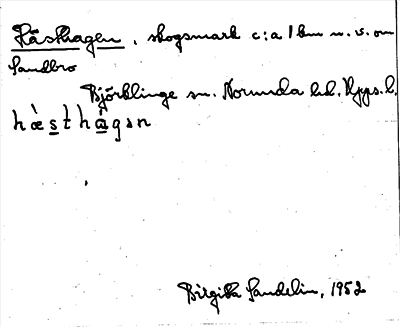 Hästhagen, skogsmark c:a 1 km n.v. om
Sandbro
Björklinge sn. Norunda hd. Upps. l.
hæ̀sthа̄gən
Birgitta Sandelin, 1952